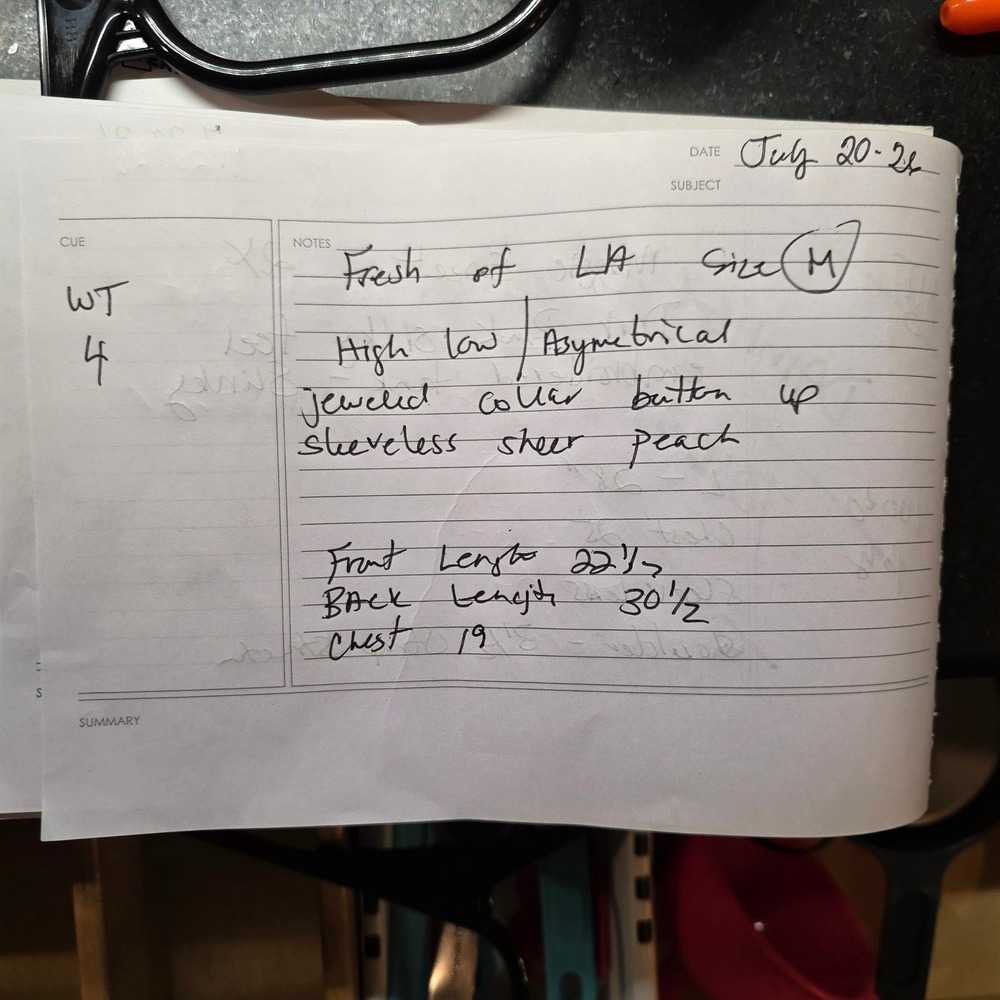 DATE July 20-26
SUBJECT
CUE
WT
4
NOTES
Fresh of LA Size M
High low / Asymetrical
jeweled collar button up
sleeveless sheer peach
Front Length 22 1/2
BACK Length 30 1/2
Chest 19
SUMMARY